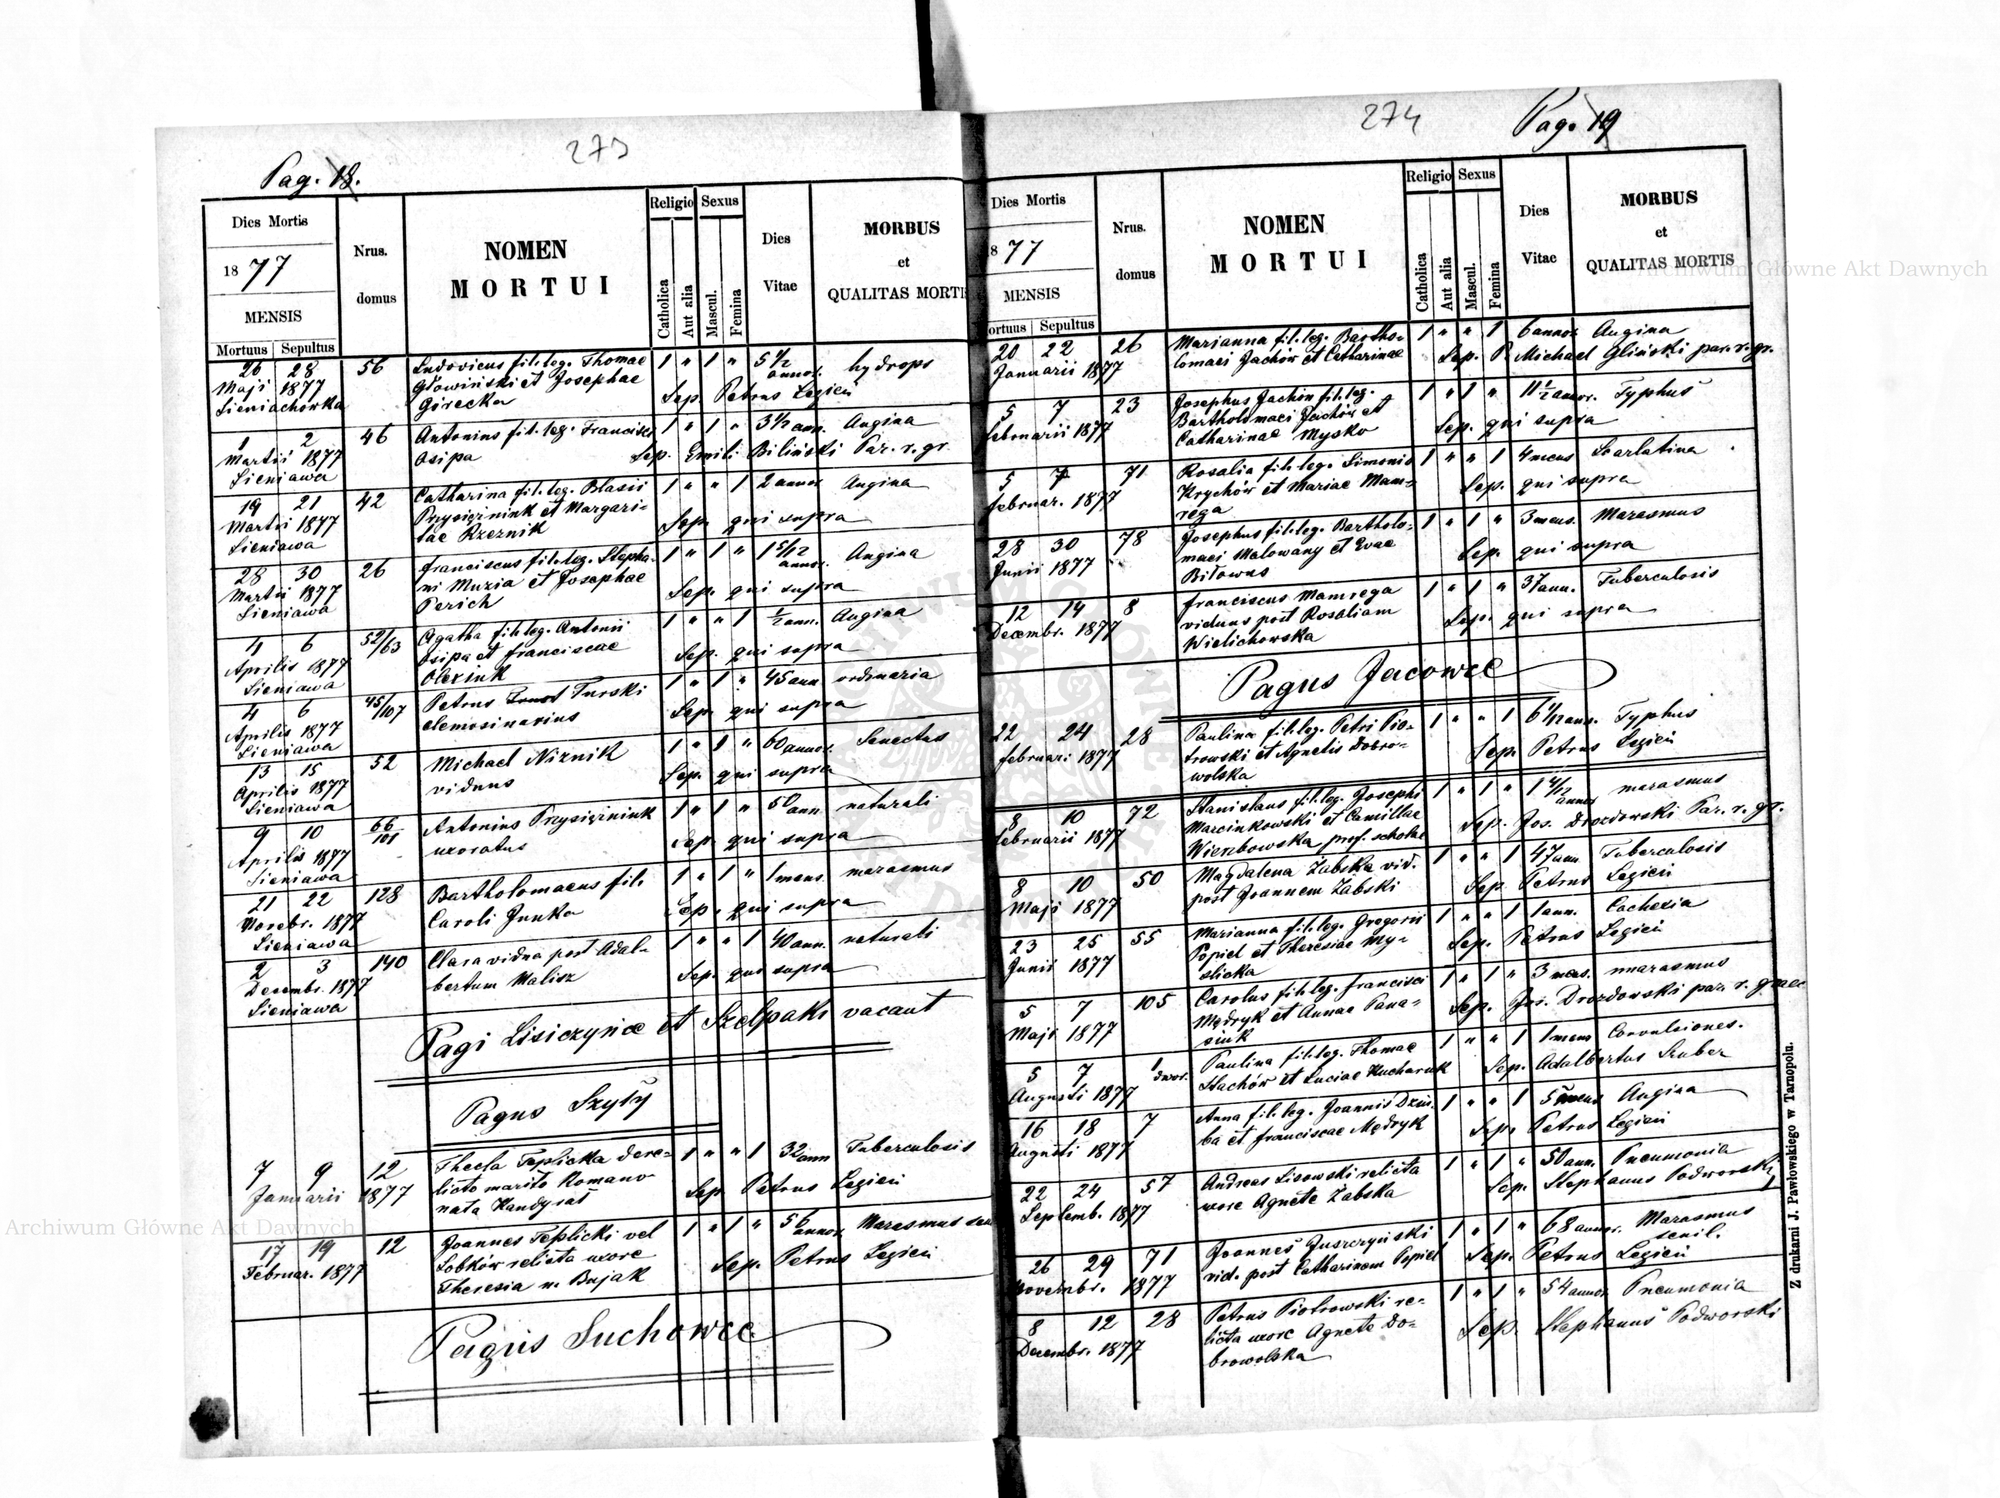 273
Pag. 18.
Dies Mortis
1877
MENSIS
Mortuus Sepultus
Nrus. domus
NOMEN
MORTUI
Religio
Catholica
Aut alia
Sexus
Mascul.
Femina
Dies Vitae
MORBUS
et
QUALITAS MORTIS
26 28 56 Ludovicus fil. leg. Thomae 1 " 1 " 5 1/2 annor. hydrops
Maji 1877 Głowiński et Josephae Sep. Petrus Legień
Sieniachówka Górecka
1 2 46 Antonius fil. leg. Francisci 1 " 1 " 3 1/2 ann. Angina
Martii 1877 Osipa Sep. Emili Biliński Par. r. gr.
Sieniawa
19 21 42 Catharina fil. leg. Blasii 1 " " 1 2 annor. Angina
Martii 1877 Przysiężniuk et Margari-
Sieniawa tae Rzeznik Sep. qui supra
28 30 26 Franciscus fil. leg. Stepha- 1 " 1 " 1 5/12 annor. Angina
Martii 1877 ni Muzia et Josephae Sep. qui supra
Sieniawa Perich
4 6 52/63 Agatha fil. leg. Antonii 1 " " 1 1/2 ann. Angina
Aprilis 1877 Osipa et Franciscae Sep. qui supra
Sieniawa Olexiuk
4 6 45/107 Petrus Turski 1 " 1 " 45 ann. ordinaria
Aprilis 1877 elemosinarius Sep. qui supra
Sieniawa
13 15 52 Michael Niznik 1 " 1 " 60 annor. Senectus
Aprilis 1877 viduus Sep. qui supra
Sieniawa
9 10 66/101 Antonius Przysiężniuk 1 " 1 " 50 ann. naturali
Aprilis 1877 uxoratus Sep. qui supra
Sieniawa
21 22 128 Bartholomaeus fil. 1 " 1 " 1 mens. marasmus
Novebr. 1877 Caroli Junka Sep. qui supra
Sieniawa
2 3 140 Clara vidua post Adal- 1 " " 1 40 ann. naturali
Decembr. 1877 bertum Malisz Sep. qui supra
Sieniawa
Pagi Lisiczyńce et Szelpaki vacant
Pagus Szyły
7 9 12 Thecla Teplicka dere- 1 " " 1 32 ann Tuberculosis
Januarii 1877 licto marito Romano Sep. Petrus Legień
nata Handysat
17 19 12 Joannes Teplicki vel 1 " 1 " 56 annor. Marasmus
Februar. 1877 Sobków relicta uxore Sep. Petrus Legień
Theresia n. Bujak
Pagus Suchowce
274
Pag. 19
Dies Mortis
1877
MENSIS
Mortuus Sepultus
Nrus. domus
NOMEN
MORTUI
Religio
Catholica
Aut alia
Sexus
Mascul.
Femina
Dies Vitae
MORBUS
et
QUALITAS MORTIS
20 22 26 Marianna fil. leg. Bartho- 1 " " 1 6 annor. Angina
Januarii 1877 lomaei Jachów et Catharinae Sep. P. Michael Gliński par. r. gr.
5 7 23 Josephus Jachów fil. leg. 1 " 1 " 11 1/2 annor. Typhus
Februarii 1877 Bartholomaei Jachów et Sep. qui supra
Catharinae Mysko
5 7 71 Rosalia fil. leg. Simonis 1 " " 1 4 mens Scarlatina
Februar. 1877 Krychów et Mariae Mam- Sep. qui supra
rega
28 30 78 Josephus fil. leg. Bartholo- 1 " 1 " 3 mens. Marasmus
Junii 1877 maei Malowany et Evae Sep. qui supra
Biłowus
12 14 8 Franciscus Mamrega 1 " 1 " 37 ann. Tuberculosis
Decembr. 1877 viduus post Rosaliam Sep. qui supra
Wielichowska
Pagus Jacowce
22 24 28 Paulina fil. leg. Petri Pio- 1 " " 1 6 1/12 ann. Typhus
Februari 1877 trowski et Agnetis Dobro- Sep. Petrus Legień
wolska
8 10 72 Stanislaus fil. leg. Josephi 1 " 1 " 1 4/12 annor marasmus
Februarii 1877 Marcinkowski et Camillae Sep. Jos. Drozdowski Par. r. gr.
Wierzbowska prof. scholae
8 10 50 Magdalena Zabska vid. 1 " " 1 47 ann. Tuberculosis
Maji 1877 post Joannem Zabski Sep. Petrus Legień
23 25 55 Marianna fil. leg. Gregorii 1 " " 1 1 ann. Cachexia
Junii 1877 Popiel et Theresiae My- Sep. Petrus Legień
slicka
5 7 105 Carolus fil. leg. Francisci 1 " 1 " 3 mens. marasmus
Maji 1877 Mędryk et Annae Pana- Sep. Jos. Drozdowski par. r. graec
siuk
5 7 1 dwor. Paulina fil. leg. Thomae 1 " " 1 1 mens Convulsiones.
Augusti 1877 Stachów et Luciae Kucharuk Sep. Adalbertus Szuber
16 18 7 Anna fil. leg. Joannis Dziu- 1 " " 1 5 mens Angina
Augusti 1877 ba et Franciscae Mędryk Sep. Petrus Legień
22 24 57 Andreas Lisowski relicta 1 " 1 " 50 ann. Pneumonia
Septemb. 1877 uxore Agnete Zabska Sep. Stephanus Podworski
26 29 71 Joannes Juszczyński 1 " 1 " 68 annor. Marasmus
Novembr. 1877 vid. post Catharinam Popiel Sep. Petrus Legień senil.
8 12 28 Petrus Piotrowski re- 1 " 1 " 54 annor. Pneumonia
Decembr. 1877 licta uxore Agnete Do- Sep. Stephanus Podworski
browolska
Z drukarni J. Pawłowskiego w Tarnopolu.
Archiwum Główne Akt Dawnych
Archiwum Główne Akt Dawnych